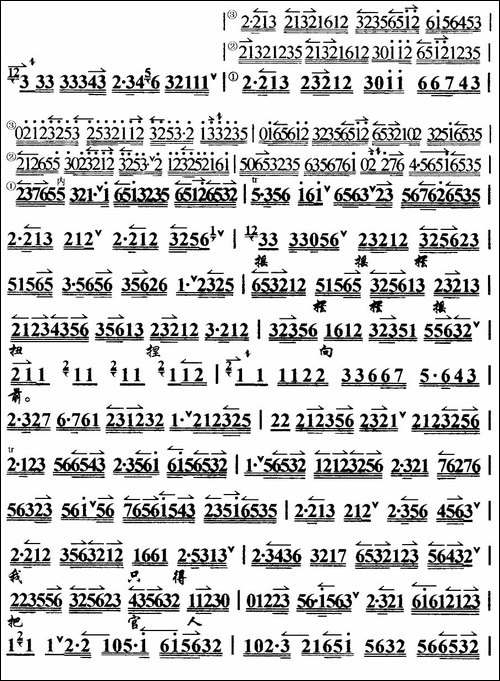 ③ 2·213 21321612 32356512 6156453
② 21321235 21321612 30112 65121235
3 33 33343 2·3456 32111ᵛ | ① 2·213 23212 3011 66743
③ 02123253 2532112 3253·2 133235 | 0165612 32356512 6532102 32516535
② 212655 3023212 3253ᵛ2 123252161 | 50653235 6356761 02 276 4·56516535
① 237655 内 321·ᵛ1 6513235 65126532 | tr 5·356 161ᵛ 6563ᵛ23 567626535
2·213 212ᵛ 2·212 3256 1ᵛ | 33 33056ᵛ 23212 325623
摇 摆
51565 3·5656 35626 1·ᵛ2325 | 653212 51565 325613 23213
摆 摆 摇
21234356 35613 23212 3·212 | 32356 1612 32351 55632ᵛ
扭 捏 向
211 11 11 112 | 1 1 1122 33667 5·643
前。
2·327 6·761 231232 1·ᵛ212325 | 22 212356 2321ᵛ 2123256
tr
2·123 566543 2·3561 6156532 | 1·ᵛ56532 12123256 2·321 76276
56323 561ᵛ56 76561543 23516535 | 2·213 212ᵛ 2·356 4563ᵛ
2·212 3563212 1661 2·5313ᵛ | 2·3436 3217 6532123 56432ᵛ
我 只 得
223556 325623 435632 11230 | 01223 56·1563ᵛ 2·321 61612123
把 官 人
1 1 1ᵛ2·2 105·1 615632 | 102·3 21651 5632 566532